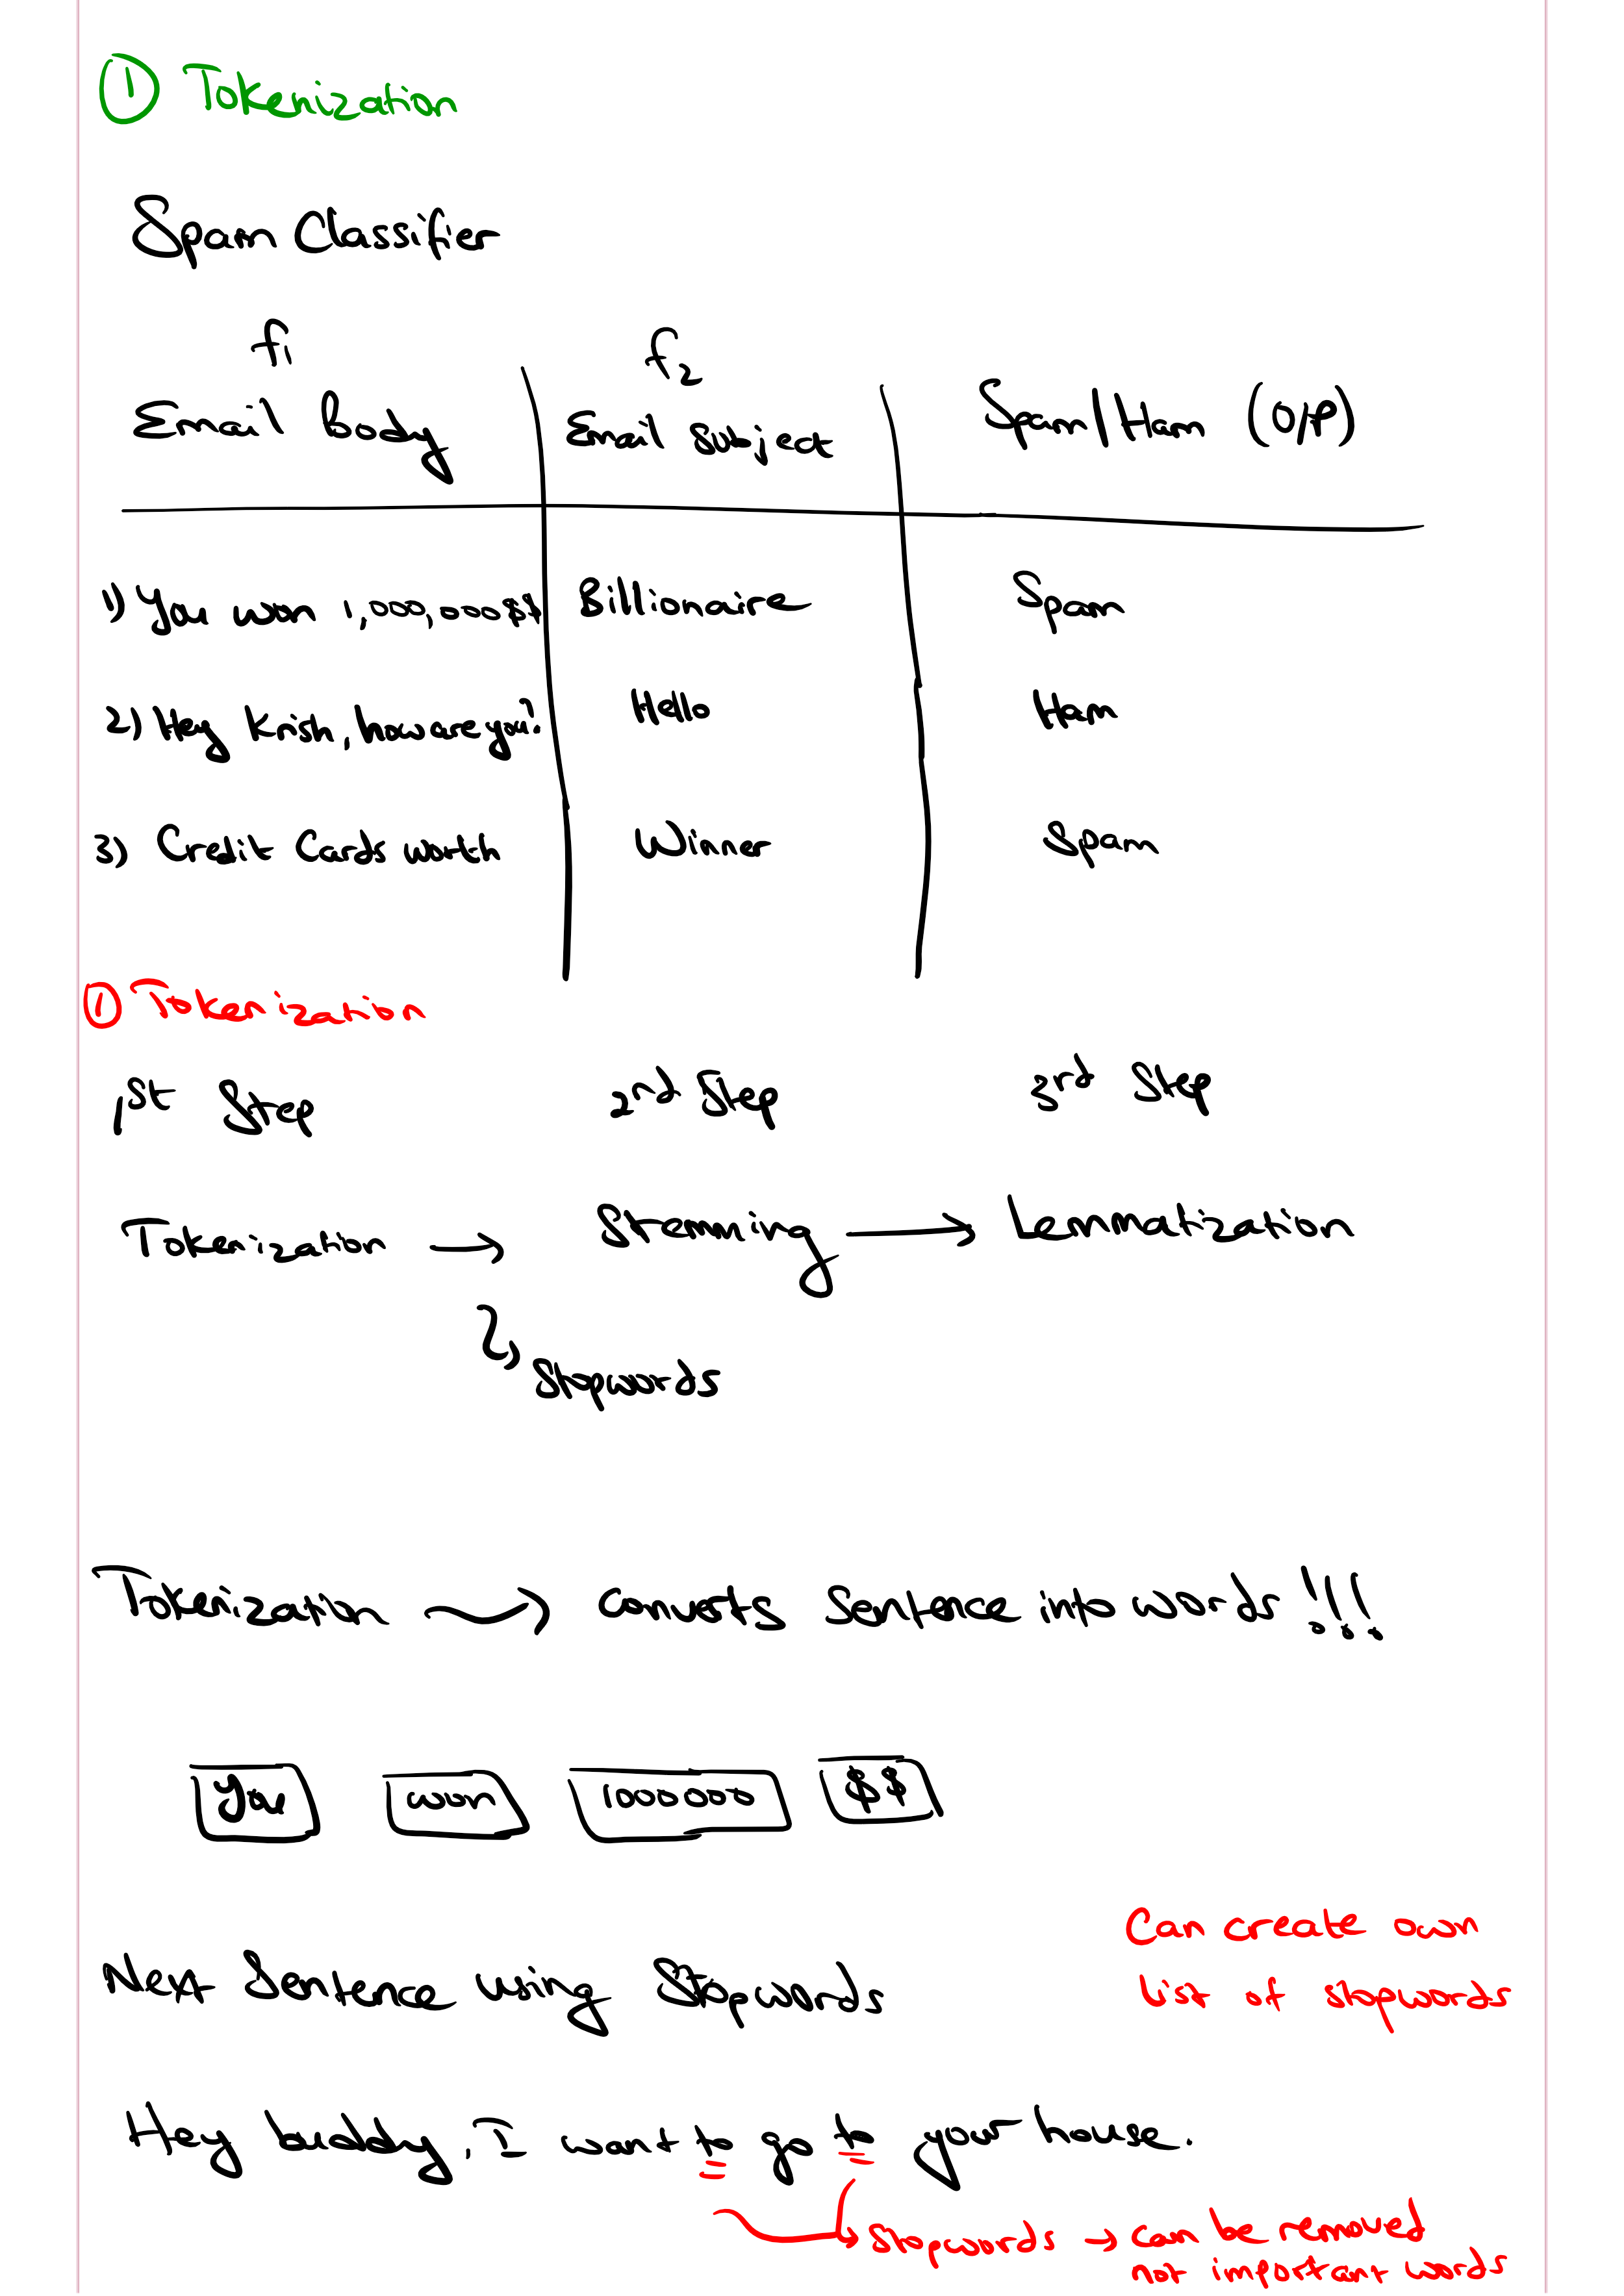 ① Tokenization
Spam Classifier
f1 f2
Email Body Email Subject Spam/Ham (O/P)
1) You won 1,000,000$$ Billionaire Spam
2) Hey Krish, how are you? Hello Ham
3) Credit Cards worth Winner Spam
① Tokenization
1st Step 2nd Step 3rd Step
Tokenization → Stemming → Lemmatization
Stopwords
Tokenization → converts sentence into words!!!
You won 1000000 $$
Can create own
list of stopwords
Next Sentence using Stopwords
Hey buddy, I want to go to your house.
Stopwords → can be removed
not important words